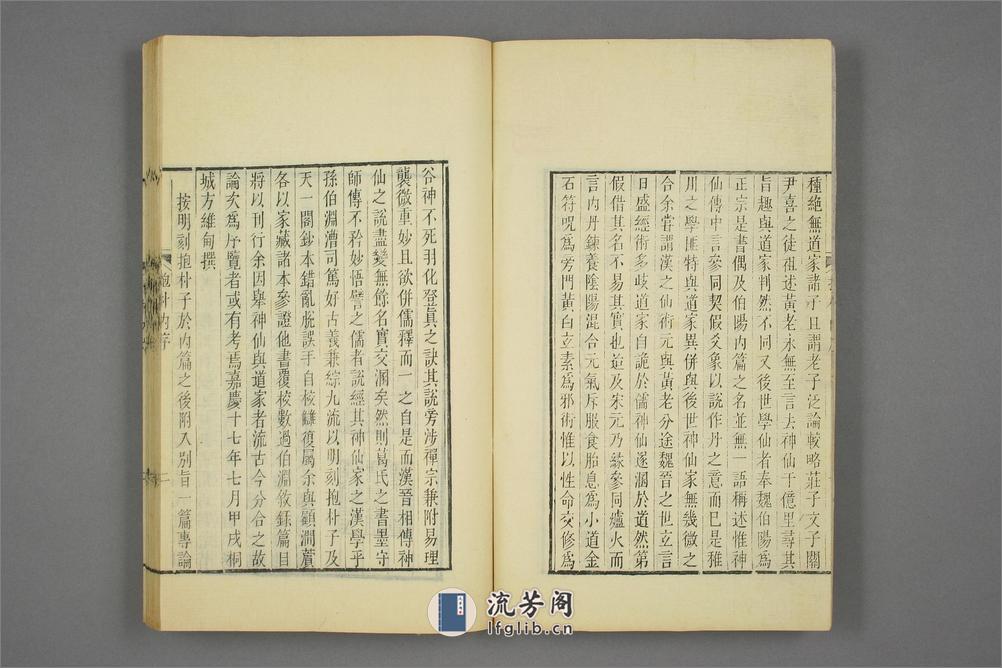 種絶無道家諸子且謂老子泛論較略莊子文子關
尹喜之徒祖述黃老永無至言去神仙千億里尋其
旨趣與道家判然不同又後世學仙者奉魏伯陽爲
正宗是書偶及伯陽內篇之名並無一語稱述惟神
仙傳中言參同契假爻象以說作丹之意而已是稚
川之學匪特與道家異併與後世神仙家無幾微之
合余嘗謂漢之仙術元與黃老分途魏晉之世立言
日盛經術多歧道家自詭於儒神仙遂溷於道然第
假借其名不易其實也迨及宋元乃緣參同爐火而
言內丹鍊養陰陽混合元氣斥服食胎息爲小道金
石符咒爲旁門黃白立素爲邪術惟以性命交修爲
谷神不死羽化登眞之訣其說旁涉禪宗兼附易理
襲微重妙且欲併儒釋而一之自是而漢晉相傳神
仙之說盡變無餘名實交溷矣然則葛氏之書墨守
師傳不矜妙悟譬之儒者說經其神仙家之漢學乎
孫伯淵漕司篤好古義兼綜九流以明刻抱朴子及
天一閣鈔本錯亂脫誤手自校讎復屬余與顧澗薲
各以家藏諸本參證他書覆校數過伯淵敘錄篇目
將以刊行余因舉神仙與道家者流古今分合之故
論次爲序覽者或有考焉嘉慶十七年七月甲戌桐
城方維甸撰
按明刻抱朴子於內篇之後附入別旨一篇專論
抱朴內序
流芳阁
lfglib.cn